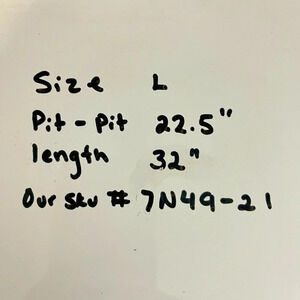 Size L
Pit-Pit 22.5"
length 32"
Our sku # 7N49-21